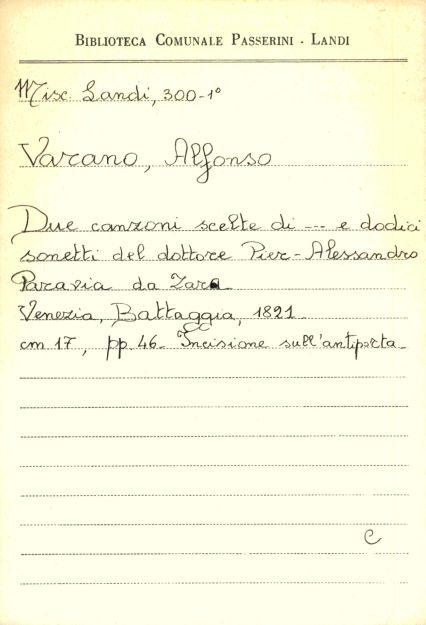 BIBLIOTECA COMUNALE PASSERINI - LANDI
Misc. Landi, 300-1°
Varano, Alfonso
Due canzoni scelte di --- e dodici
sonetti del dottore Pier-Alessandro
Paravia da Zara
Venezia, Battaggia, 1821
cm 17, pp. 46- Incisione sull'antiporta-
C